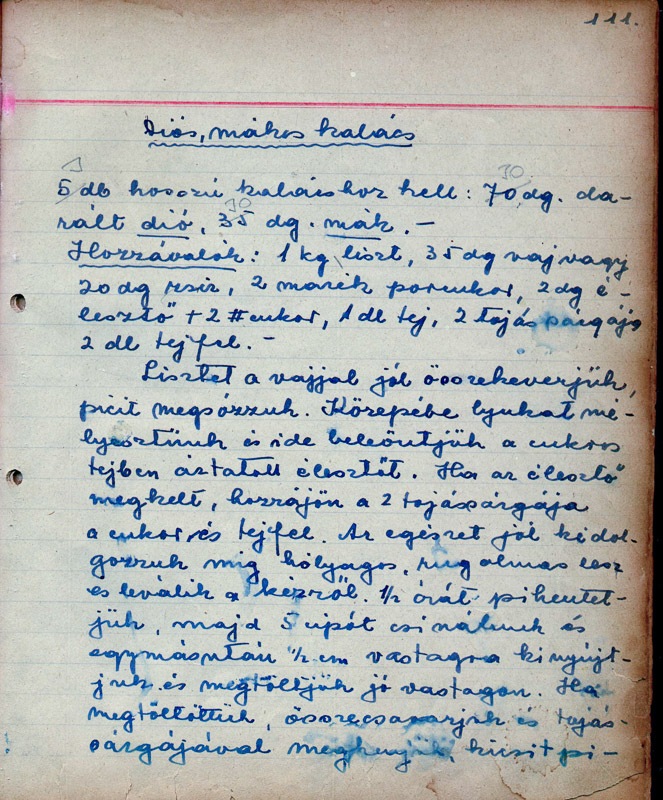 111.
Diós, mákos kalács
5 db hosszú kalácshoz kell: 70 dg. da-
rált dió, 35 dg. mák. -
Hozzávalók: 1 kg liszt, 35 dg vaj vagy
20 dg zsír, 2 marék porcukor, 2 dg é-
lesztő + 2 # cukor, 1 dl tej, 2 tojás sárgája
2 dl tejfel. -
Lisztet a vajjal jól összekeverjük,
picit megsózzuk. Közepébe lyukat mé-
lyesztünk és ide beleöntjük a cukros
tejben áztatott élesztőt. Ha az élesztő
megkelt, hozzájön a 2 tojássárgája
a cukor és tejfel. Az egészet jól kidol-
gozzuk míg hólyagos, rugalmas lesz
és leválik a kézről. 1/2 órát pihentet-
jük, majd 5 cipót csinálunk és
egymásután 1/2 cm vastagra kinyújt-
juk és megtöltjük jó vastagon. Ha
megtöltöttük, összecsavarjuk és tojás-
sárgájával megkenjük, kicsit pi-